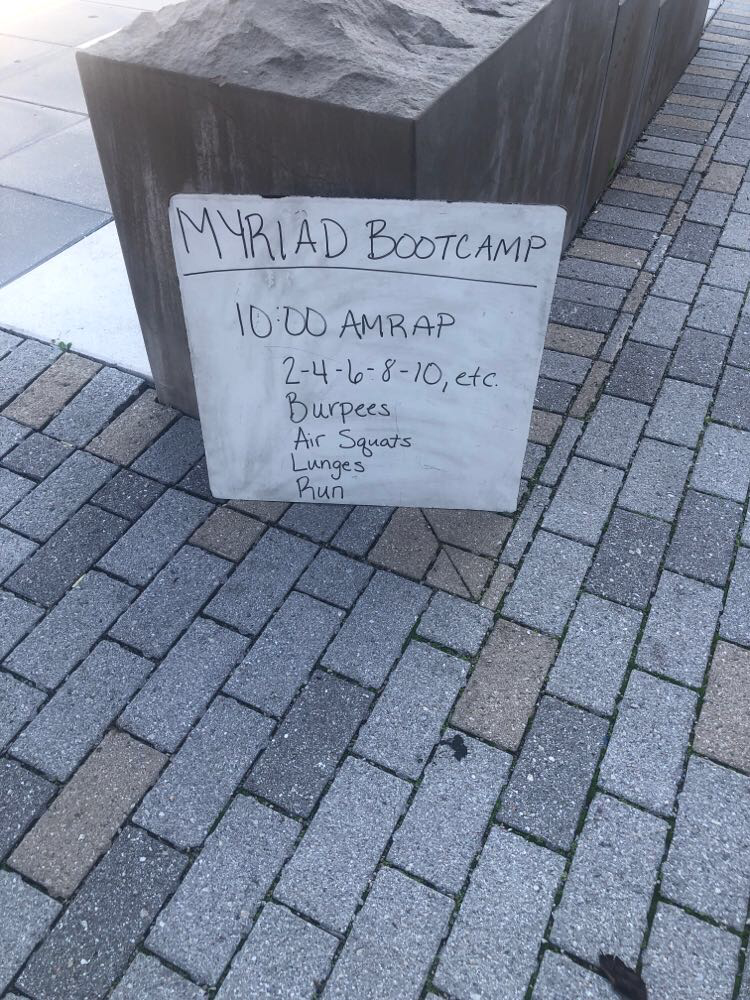 MYRIAD BOOTCAMP
10:00 AMRAP
2-4-6-8-10, etc.
Burpees
Air Squats
Lunges
Run